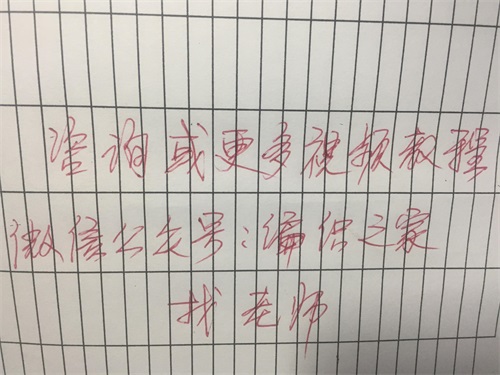 咨询或更多视频教程
微信公众号:编侣之家
找老师